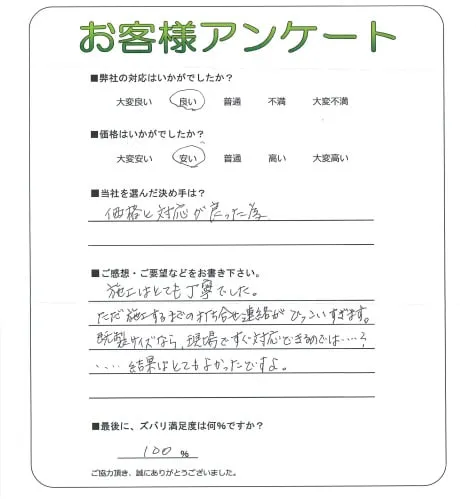 お客様アンケート
■弊社の対応はいかがでしたか?
大変良い 良い 普通 不満 大変不満
■価格はいかがでしたか?
大変安い 安い 普通 高い 大変高い
■当社を選んだ決め手は?
価格と対応が良った為
■ご感想・ご要望などをお書き下さい。
施工はとても丁寧でした。
ただ施工するまでの打ち合せ連絡がひつこいすぎます。
既製サイズなら、現場ですぐ対応できるのでは……?
……結果はとてもよかったですよ。
■最後に、ズバリ満足度は何%ですか?
100 %
ご協力頂き、誠にありがとうございました。